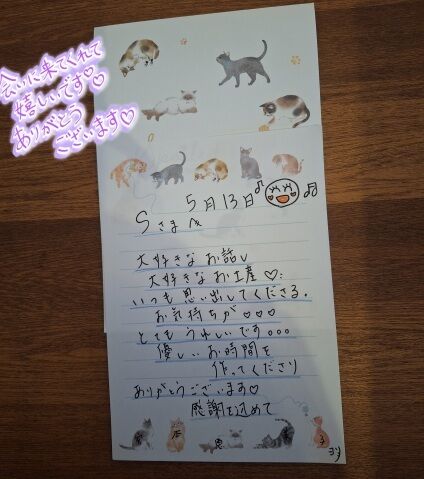 会いに来てくれて
嬉しいです♡♡
ありがとう
ございます♡
5月13日
Sさまへ
大好きなお話し
大好きなお土産♡
いつも思い出してくださる。
お気持ちが♡♡♡
とてもうれしいです。。。
優しいお時間を
作ってくださり
ありがとうございます♡
感謝を込めて